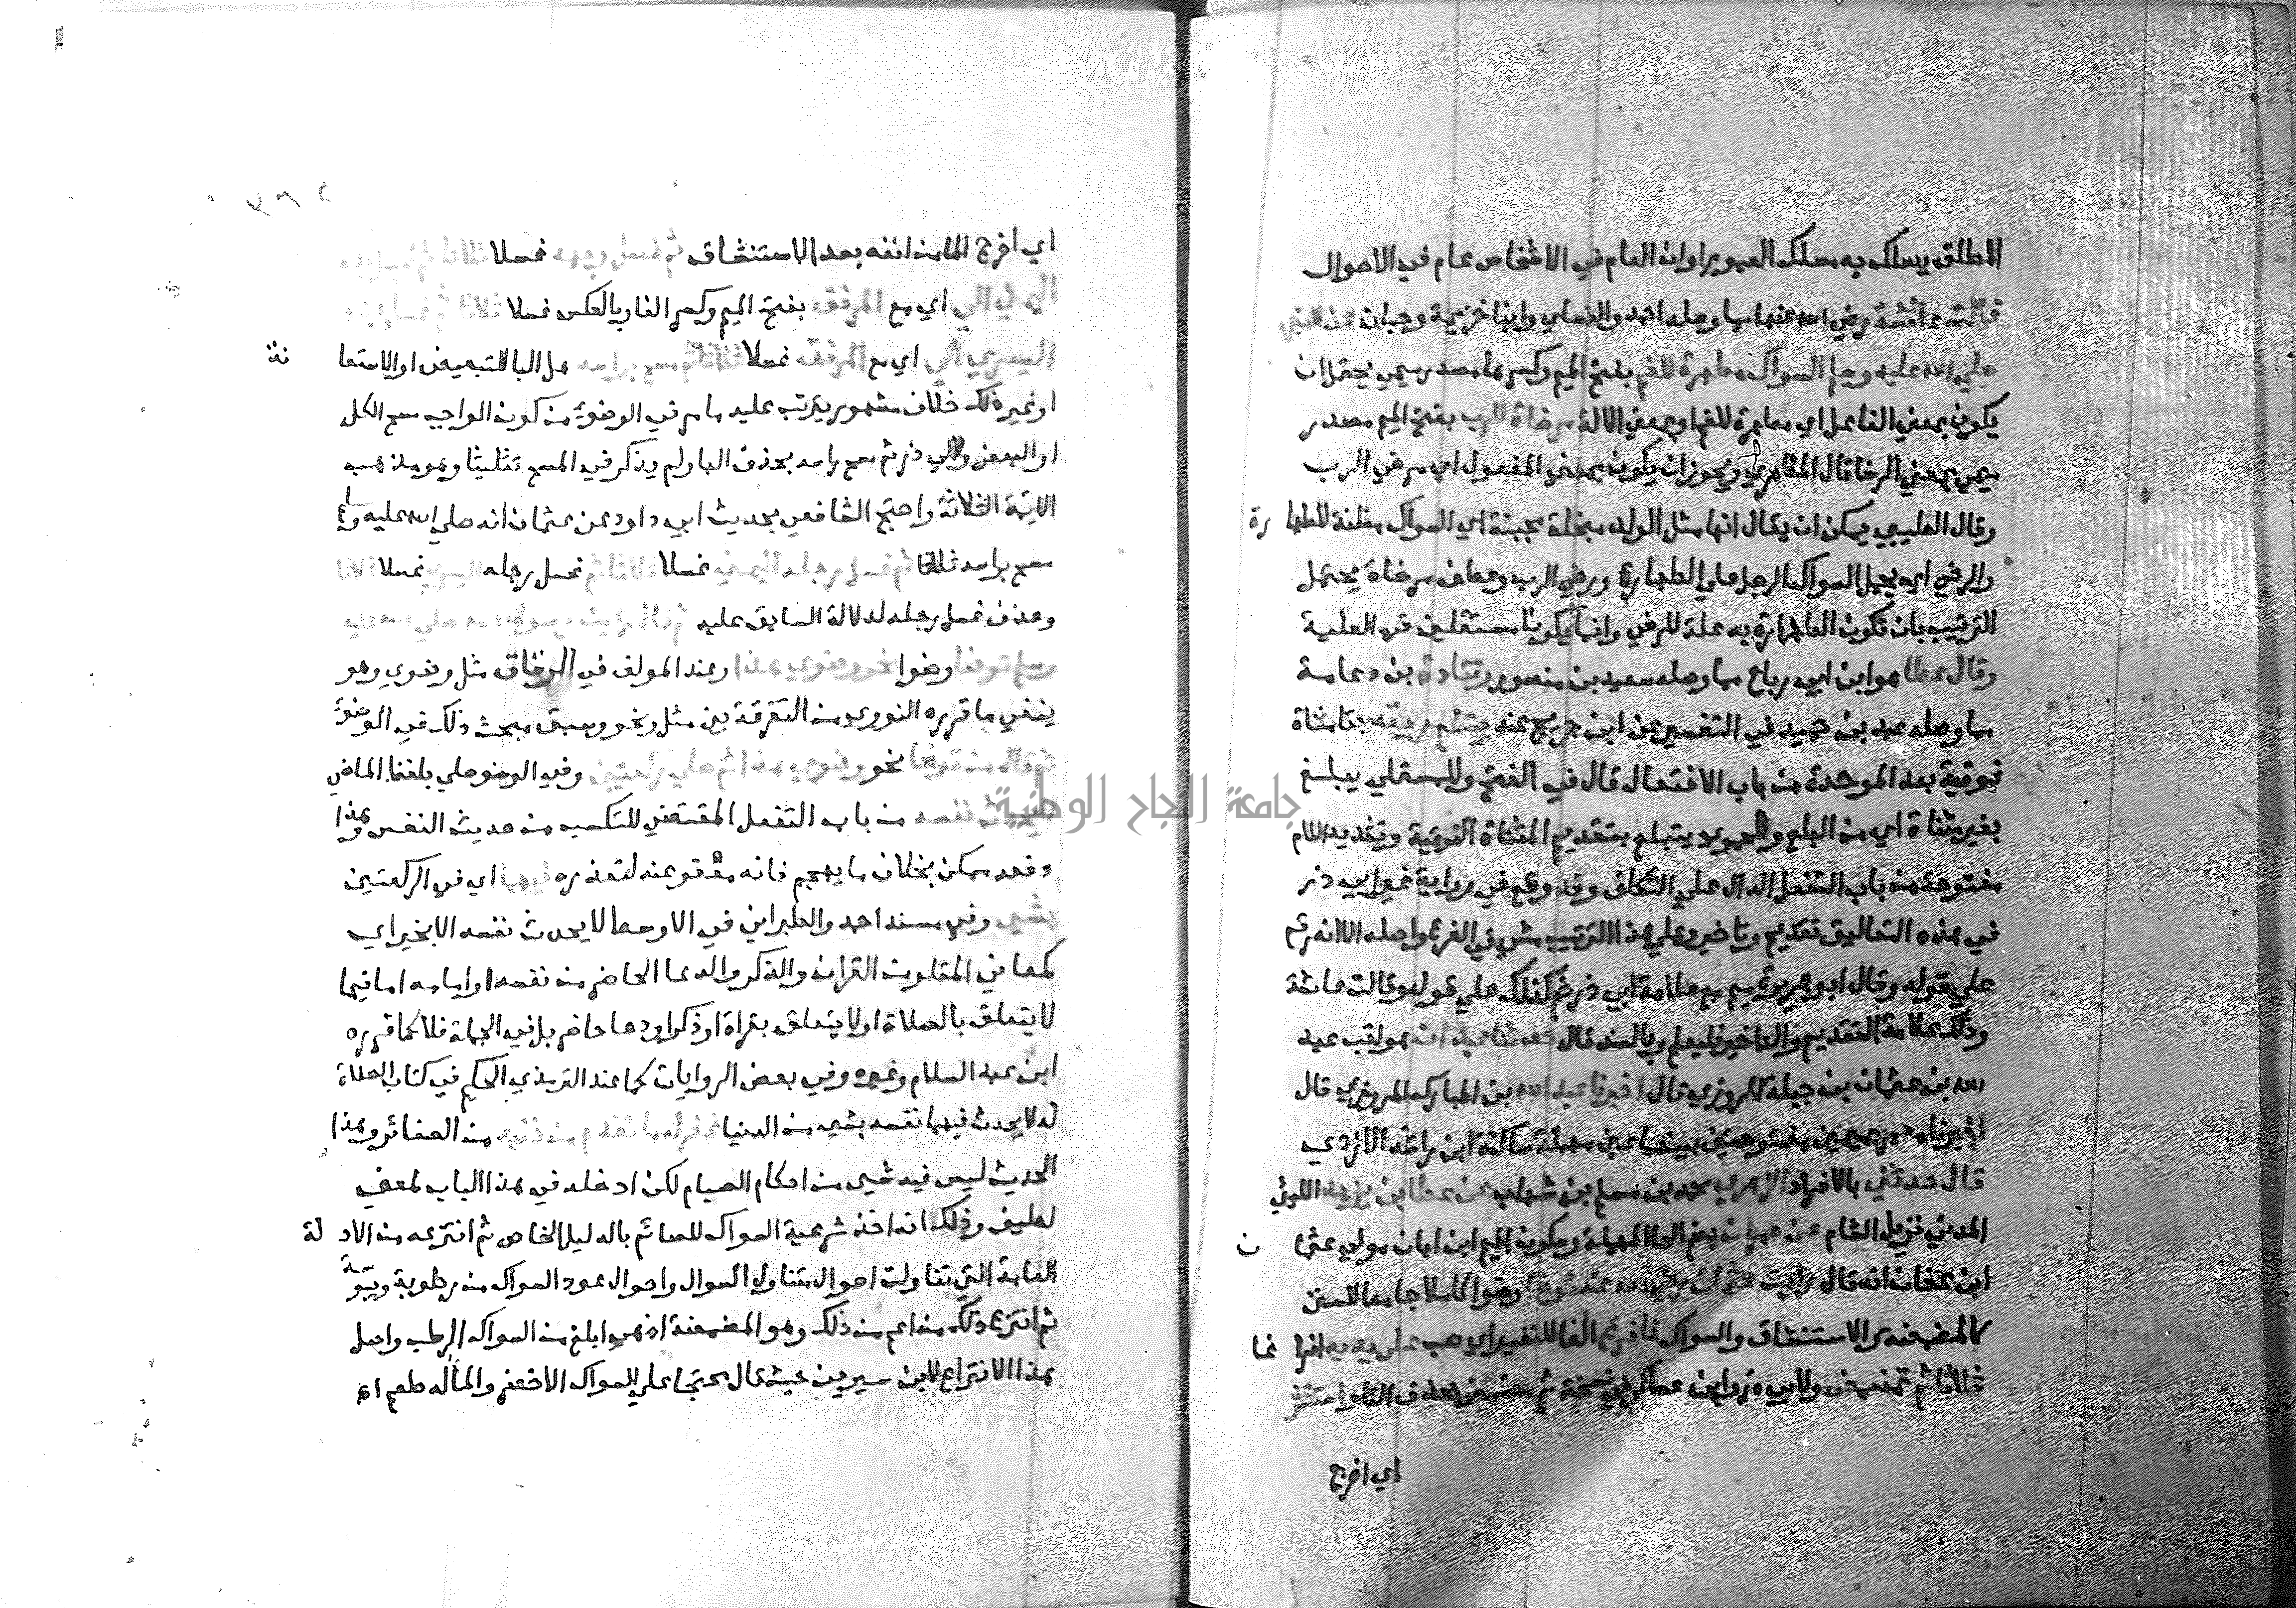 المطلق يسلك به مسلك العموم او ان العام في الاشخاص عام في الاحوال
قالت عائشة رضي الله عنها مما وصله احمد والنساي وابنا خزيمة وحبان عن النبي
صلي الله عليه وسلم السواك مطهرة للفم بفتح الميم وكسرها مصدر ميمي يحتمل ان
يكون بمعني الفاعل اي مطهرة للفم او بمعني الالة مرضاة للرب بفتح الميم مصدر
ميمي بمعني الرضا قال المظهري ويجوز ان يكون بمعني المفعول اي مرضي الرب
وقال الطيبي يمكن ان يقال انها مثل الولد مبخلة مجبنة اي السواك مظنة للطهارة
والرضي اي يحمل السواك الرجل علي الطهارة ورضي الرب وعطف مرضاة يحتمل
الترتيب بان تكون الطهارة به علة للرضي وانما يكونا مستقلين في العلية
وقال عطا هو ابن ابي رباح مما وصله سعيد بن منصور وقتادة بن دعامة
مما وصله عبد بن حميد في التفسير عن ابن جريج عنه يبتلع ريقه بتا مثناة
فوقية بعد الموحدة من باب الافتعال قال في الفتح وللمستملي يبلع
بغير مثناة اي من البلع وللحموي يتبلع بتقديم المثناة الفوقية وتشديد اللام
مفتوحة من باب التفعل الدال علي التكلف وقد وقع في رواية غير ابي ذر
في هذه التعاليق تقديم وتاخير وعلي هذا الترتيب مشي في الفرع واصله الا انه رقم
علي قوله وقال ابو هريرة ميم مع علامة ابي ذر ثم كذلك علي قوله وقالت عائشة
وذلك علامة التقديم والتاخير فليعلم وبالسند قال حدثنا عبدان هو لقب عبد
الله بن عثمان بن جبلة المروزي قال اخبرنا عبد الله بن المبارك المروزي قال
اخبرنا معمر بميمين مفتوحتين بينهما عين مهملة ساكنة ابن راشد الازدي
قال حدثني بالافراد الزهري محمد بن مسلم بن شهاب عن عطا بن يزيد الليثي
المدني نزيل الشام عن حمران بضم الحا المهملة وسكون الميم ابن ابان مولي عثمان
ابن عفان انه قال رايت عثمان رضي الله عنه توضا وضوا كاملا جامعا للسنن
كالمضمضة والاستنشاق والسواك فافرغ الفا للتفسير اي صب علي يديه افراغا
ثلاثا ثم تمضمض ولابي ذر وابن عساكر في نسخة ثم مضمض بحذف التا واستنثر
اي اخرج
اي اخرج الما من انفه بعد الاستنشاق ثم غسل وجهه غسلا ثلاثا ثم غسل يده
اليمني الي اي مع المرفق بفتح الميم وكسر الفا وبالعكس غسلا ثلاثا ثم غسل يده
اليسري الي اي مع المرفق غسلا ثلاثا ثم مسح براسه هل البا للتبعيض او الاستعانة
او غير ذلك خلاف مشهور يترتب عليه ما مر في الوضوء من كون الواجب مسح الكل
او البعض ولابي ذر ثم مسح راسه بحذف البا ولم يذكر في المسح تثليثا وهو مذهب
الايمة الثلاثة واحتج الشافعي بحديث ابي داود عن عثمان انه صلي الله عليه وسلم
مسح براسه ثلاثا ثم غسل رجله اليمني غسلا ثلاثا ثم غسل رجله اليسري غسلا ثلاثا
وحذف غسل رجله لدلالة السابق عليه ثم قال رايت رسول الله صلي الله عليه
وسلم توضا وضوا نحو وضوي هذا وعند المولف في الرقاق مثل وضوي وهو
ينفي ما قرره النووي من التفرقة بين مثل ونحو وسبق مبحث ذلك في الوضوء
ثم قال من توضا نحو وضوي هذا ثم صلي ركعتين وفي الوضو صلي بلفظ الماضي
لا يحدث نفسه من باب التفعل المقتضي للتكسب من حديث النفس وهذا
دفعه ممكن بخلاف ما يهجم فانه معفو عنه لتعذره فيهما اي في الركعتين
بشي وفي مسند احمد والطبراني في الاوسط لا يحدث نفسه الا بخير اي
كمعاني المتلو من القران والذكر والدعا الحاضر من نفسه او امامه اما فيما
لا يتعلق بالصلاة او لا يتعلق بقراة او ذكر او دعا حاضر بل في الجملة فلا كما قرره
ابن عبد السلام وغيره وفي بعض الروايات كما عند الترمذي الحكيم في كتاب الصلاة
له لا يحدث فيهما نفسه بشي من الدنيا غفر له ما تقدم من ذنبه من الصغائر وهذا
الحديث ليس فيه شي من احكام الصيام لكن ادخله في هذا الباب لمعني
لطيف وذلك انه اخذ شرعية السواك للصائم بالدليل الخاص ثم انتزعه من الادلة
العامة التي تناولت احوال متناول السواك واحوال عود السواك من رطوبة ويبوسة
ثم انتزع ذلك من اعم من ذلك وهو المضمضة اذ هي ابلغ من السواك الرطب واصل
هذا الانتزاع لابن سيرين حيث قال محتجا علي السواك الاخضر والما له طعم اه
جامعة النجاح الوطنية